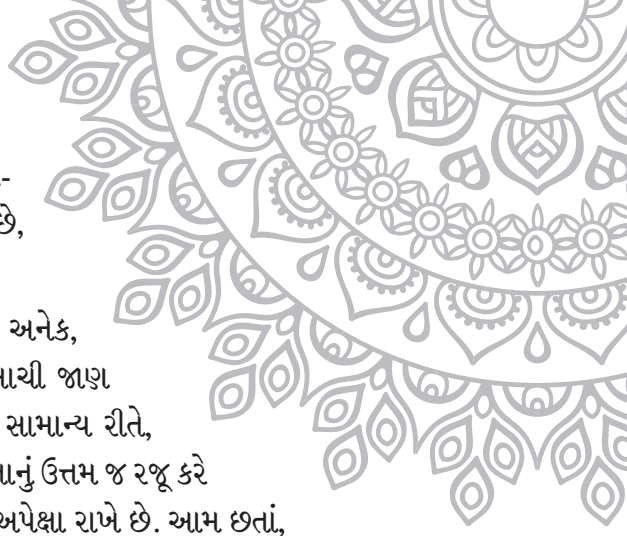 છે,
અનેક,
જાણ
સામાન્ય રીતે,
ઉત્તમ જ રજૂ કરે
અપેક્ષા રાખે છે. આમ છતાં,